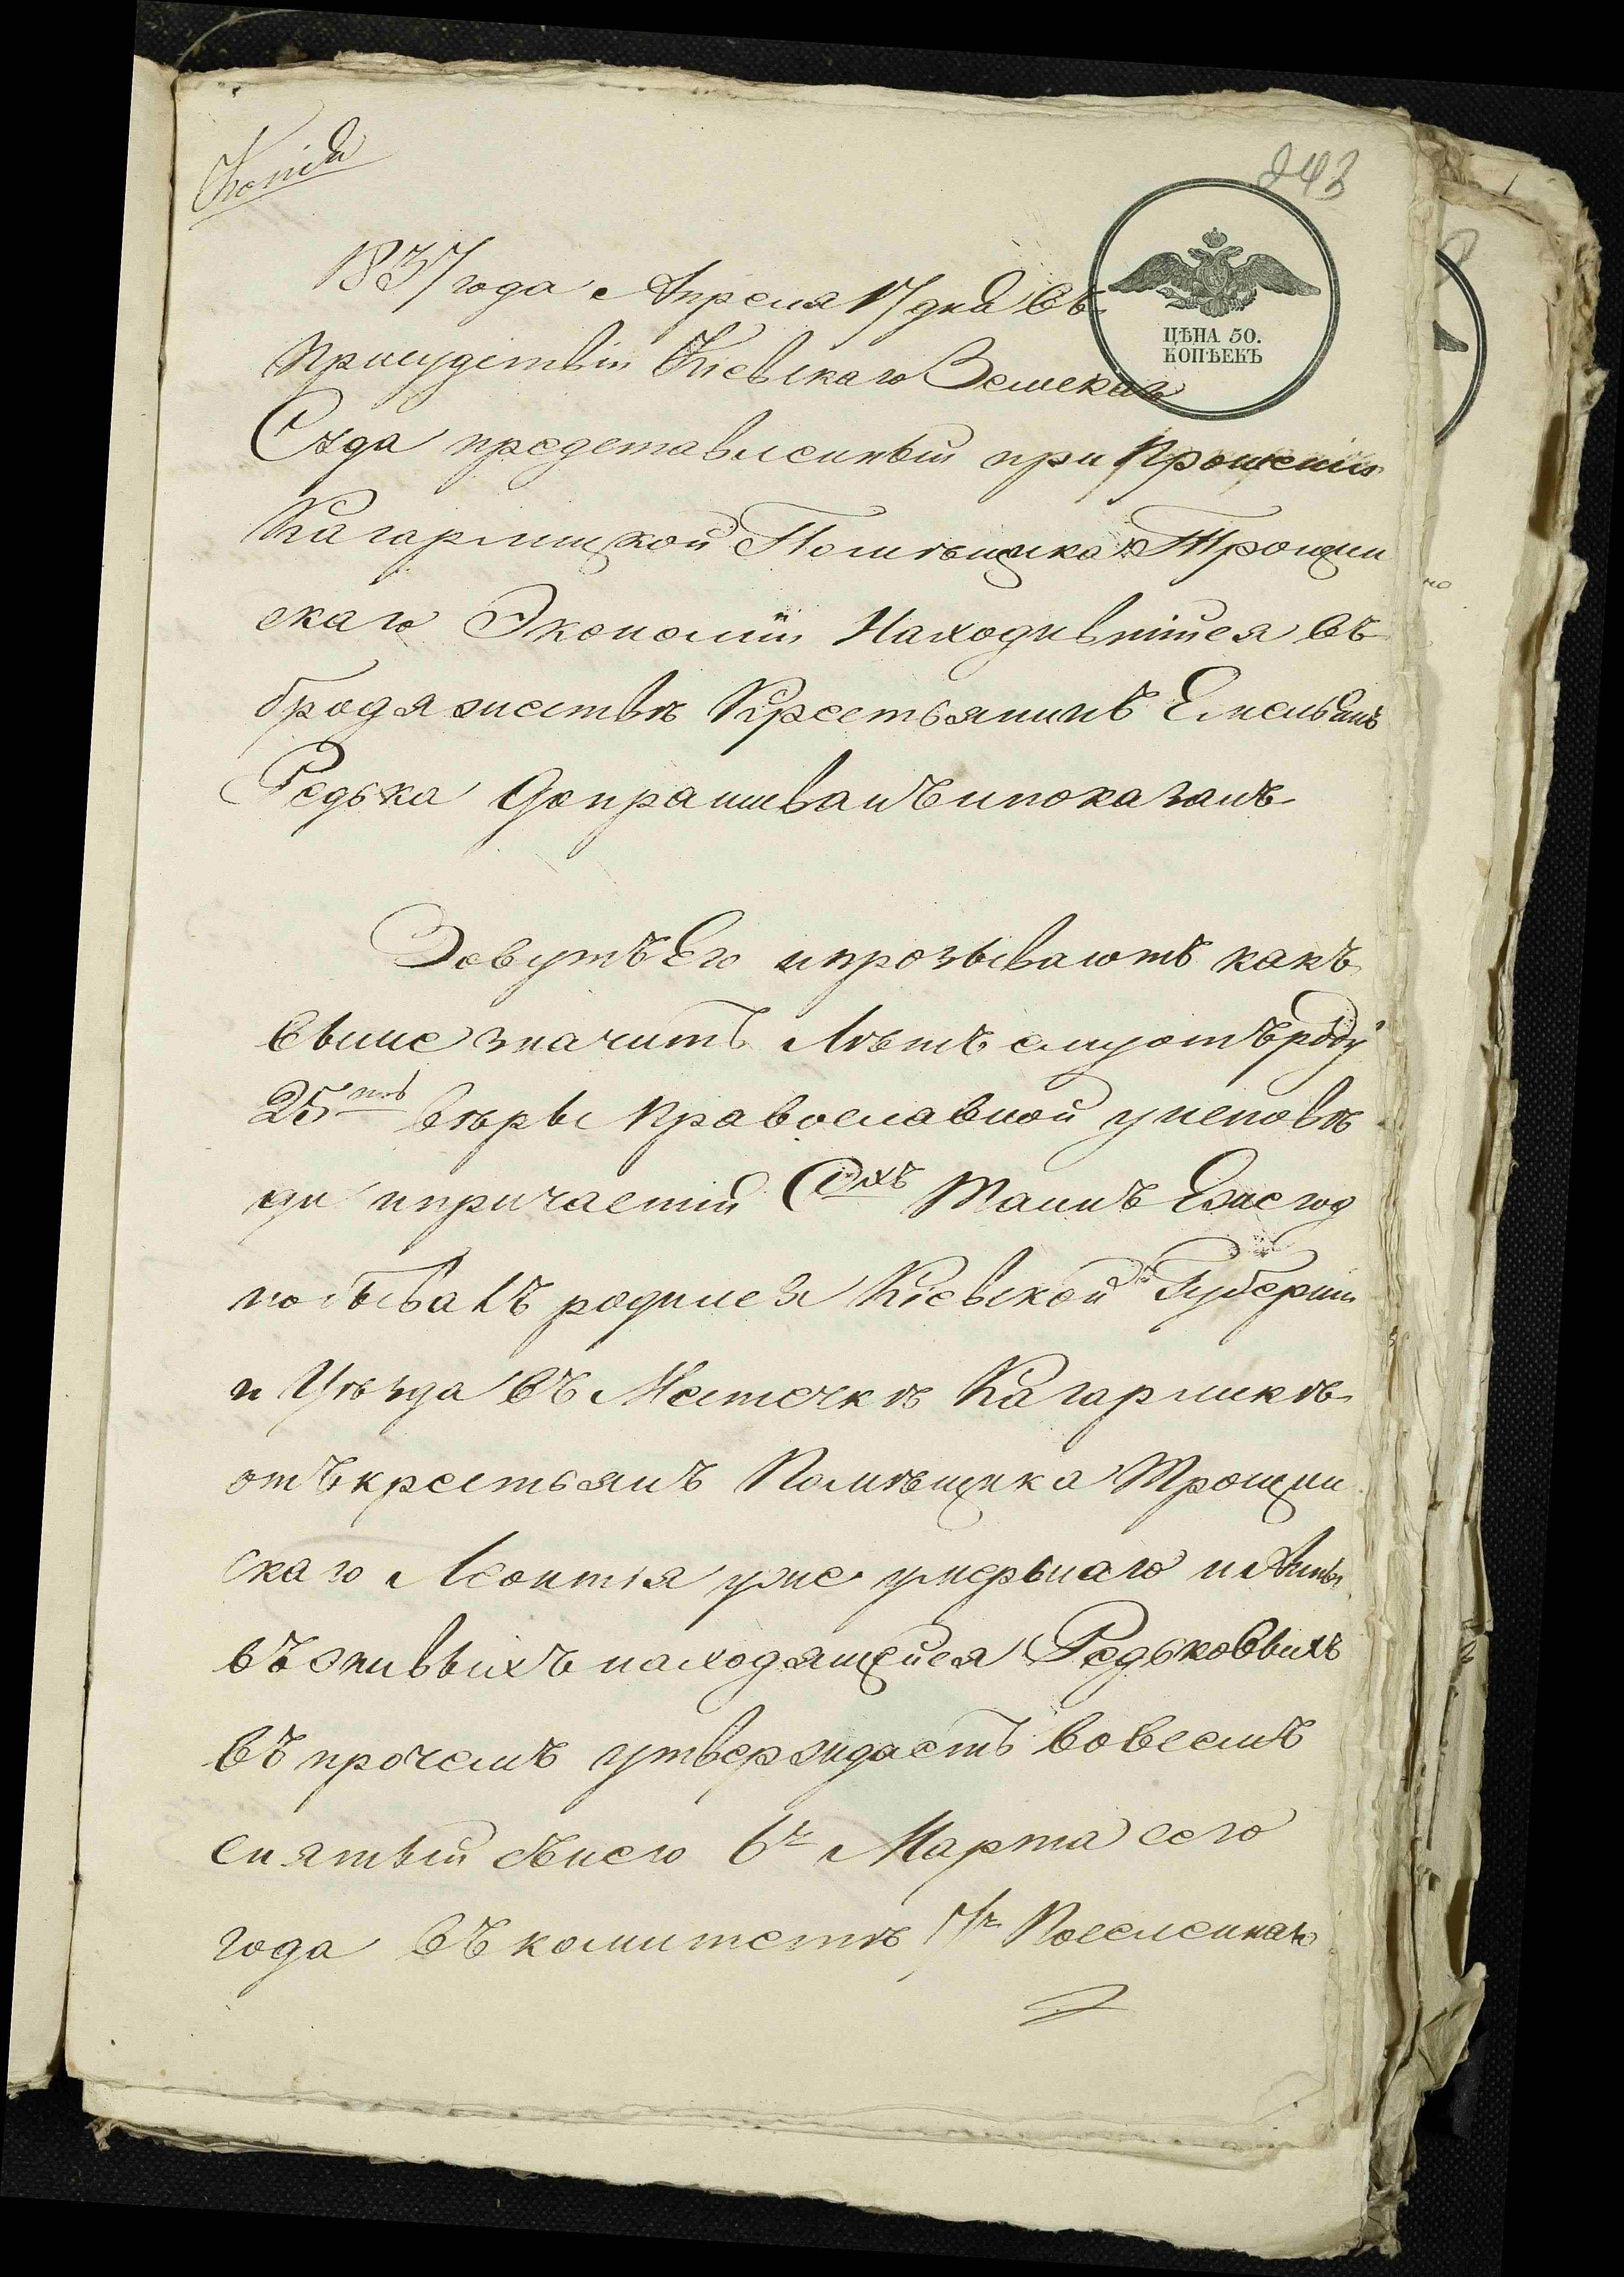 Копія
243
ЦѢНА 50.
КОПѢЕКЪ
1837 года Апреля 17 дня въ
Присудствіи Кіевскаго Земскаго
Суда представленный при Прошеніи
Кагарлицкой Помѣщика Трощин
скаго Экономіи Находившійся въ
бродяжествѣ Крестьянинъ Емельянъ
Редька допрашиванъ и показалъ
Зовутъ Его и прозываютъ какъ
выше значитъ Лѣтъ ему отъ роду
25ть вѣры Православной у исповѣ
ди и причастія С:ихъ Таинъ Ежегод
но бывалъ родился Кіевской Губерніи
и Уѣзда въ Местечкѣ Кагарликѣ
отъ крестьянъ Помѣщика Трощин
скаго Леонтія уже умершаго и Анны
въ живыхъ находящейся Редьковыхъ
въ прочемъ утверждаетъ во всемъ
снятый съ него 6го Марта сего
года въ комитетѣ